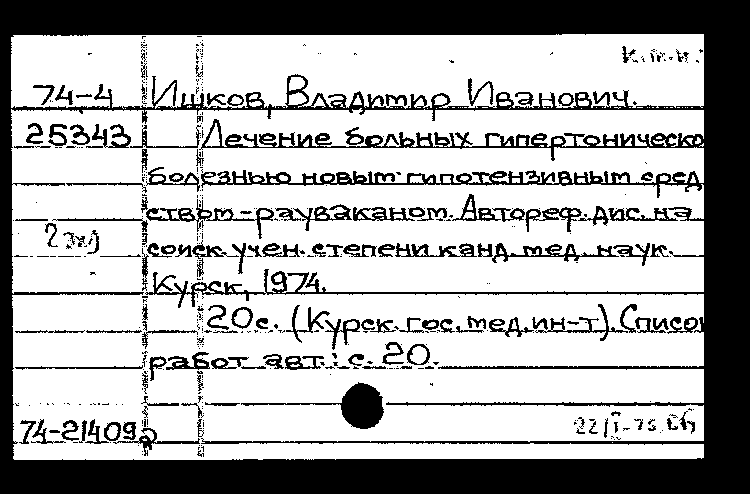 К.м.н.
74-4 Ишков, Владимир Иванович.
25343 Лечение больных гипертническо
болезнью новым гипотензивным сред
ством-раувaканом. Автореф. дис. на
2 экз соиск. учен. степени канд. мед. наук.
Курск, 1974.
20с. (Курск. гос. мед. ин-т). Списо
работ авт.: с. 20.
74-21409 22/I-75